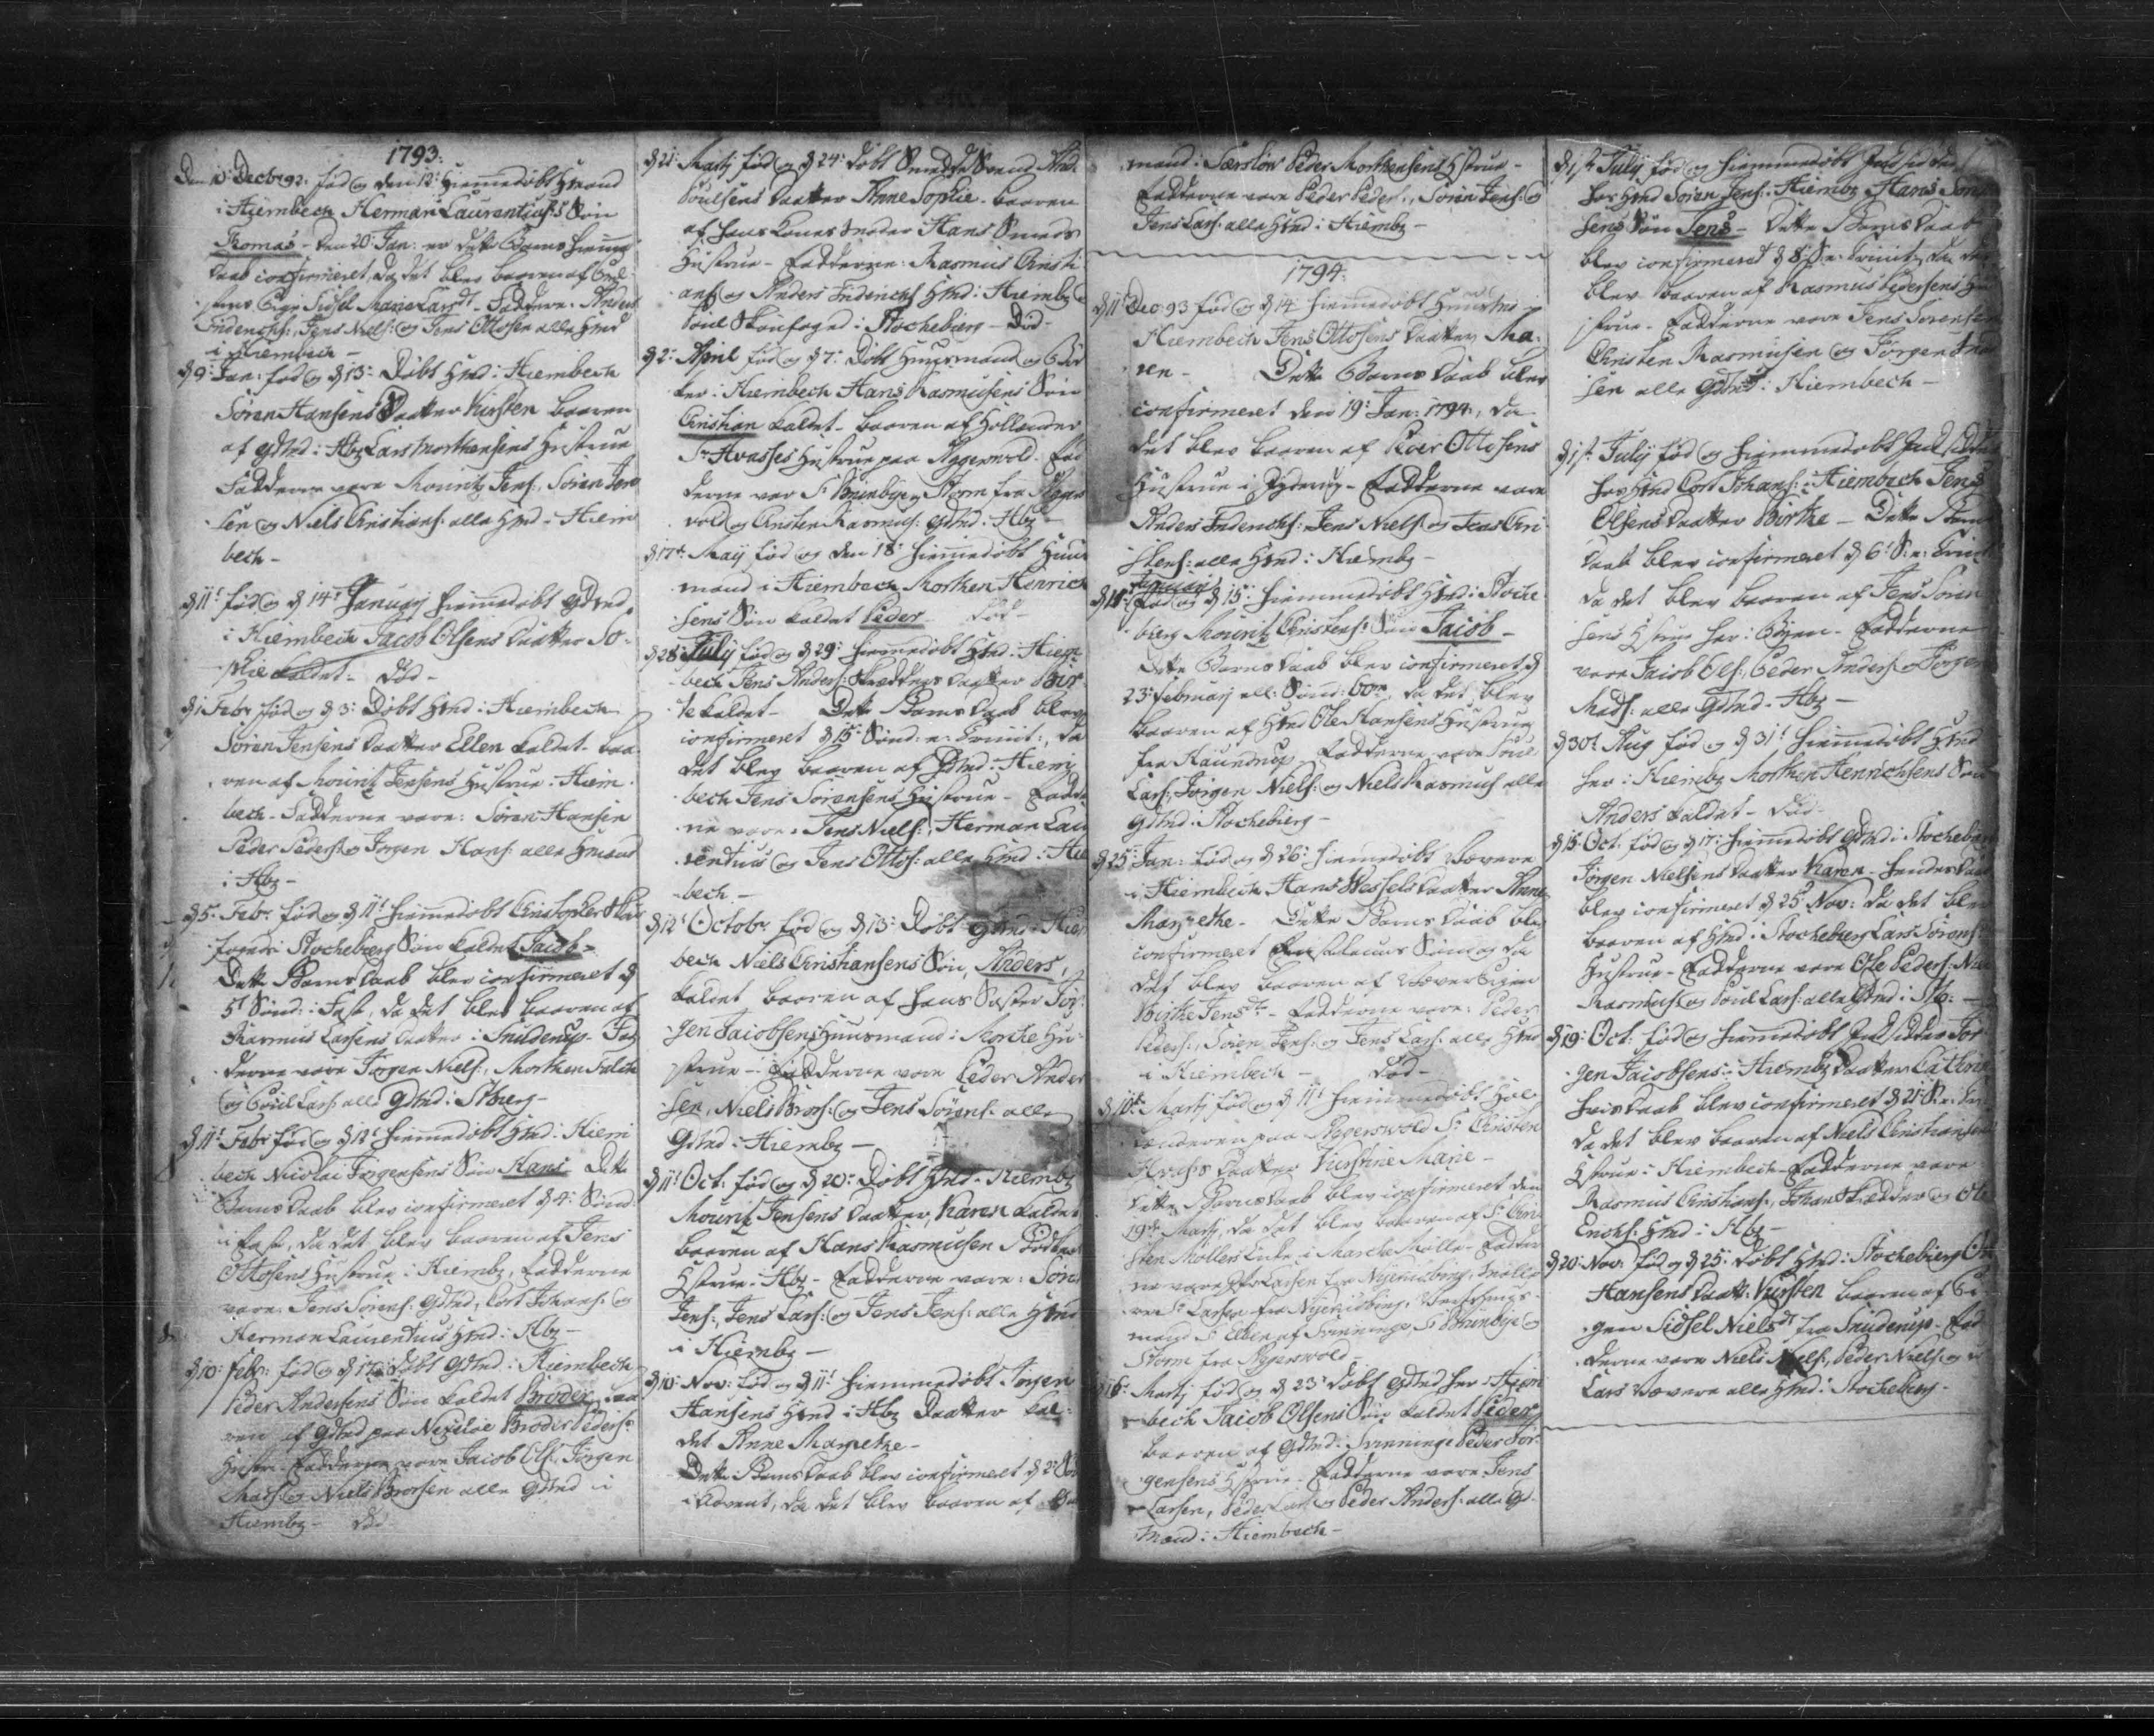 1793.
Den Decbr 92. fød og den 12: hiemmedøbt Hmand
i Hiembech Herman Laurentius's Søn
Thomas - den 20: Jan: er dette Barns hiemme
daab confirmeret, da det blev baaren af
Pige Sidsel Marie Larsdt - Fadderne. Anders
Friderichs:, Jens Niels: og Jens Ottosen alle Hmd
i Hiembech -
d 9: Jan: fød og d 13: Døbt Hmd: Hiembech
Søren Hansens Daatter Kirsten baaren
af gdmd: Hbg Lars Morthensens Hustrue
Fadderne vare Mouritz Jens:, Søren Jen
sen og Niels Christians: alle Hmd - Hiem
bech -
d 11t fød og d 14t January hiemmedøbt gdmd
i Hiembech Jacob Olsens Daatter So-
phie kaldet - død -
d 1 Febr fød og d 3: Døbt Hmd: Hiembech
Søren Jensens Daatter Ellen kaldet - baa
ren af Mouritz Jensens Hustrue: Hiem-
bech - Fadderne vare: Søren Hansen
Peder Peders: og Jørgen Hans: alle Hmænd
i Hbg -
d 5. Febr. fød og d 11t hiemmedøbt Christopher Skov
fogeds: Stochebierg Søn kaldet Jacob -
Dette Barns Daab blev confirmeret d
5t Sønd: i Fast, da det blev baaren af
Rasmus Larsens Daatter i Snuderup - Fad
derne vare Jørgen Niels:, Morthen Falch
og Poul Lars: alle Gdmd: Stbierg -
d 11t Febr fød og d 12t hiemmedøbt Hmd: Hiem
bech Nicolai Jørgensens Søn Hans Dette
Barns Daab blev confirmeret d 4: Sønd
i Fast, da det blev baaren af Jens
Ottosens Hustrue: Hiembg, Fadderne
vare: Jens Sørens: gdmd, Cort Johans: og
Herman Laurentius Hmd: Hbg -
d 10: Febr: fød og d 17: døbt gdmd: Hiembech
Peder Andersens Søn kaldet Broder baa
ren af gdmd paa Nexeløe Broder Peders:
Hustr. Fadderne vare Jacob Ols:, Jørgen
Mads: og Niels Brorsen alle Gdmd i
Hiembg - død
d 21: Martj fød og d 24: døbt Smede Svend And:
Poulsens Daatter Anne Sophie - baaren
af hans Kones Moder Hans Smeds
Hustrue - Fadderne: Rasmus Christi
ans: og Anders Friderichs Hmd: Hiembg og
Poul Skovfoged: Stochebierg - Død -
d 2: April fød og d 7: Døbt Huusmand og
ker: Hiembech Hans Rasmusens Søn
Christian kaldet - baaren af Hollender
Sr Hvasses Hustrue paa Aggersvold. Fad
derne var Sr Bruunbye, Storm fra Aggers
vold og Christen Rasmus: gdmd: Hbg -
d 17t May fød og den 18: hiemmedøbt Huus
mand i Hiembech Morthen Henrich
sens Søn kaldet Peder - død -
d 28: July fød og d 29: hiemmedøbt Hmd: Hiem
bech Jens Anders: Skrædders Daatter Bir-
te kaldet - Dette Barns Daab blev
confirmeret d 15: Sønd: e: Trinit:, da
det blev baaren af gdmd: Hiem
bech Jens Sørensens Hustrue - Fadder
ne vare: Jens Niels:, Herman Lau
rentius og Jens Ottos: alle Hmd: Hiem
bech -
d 12t Octobr: fød og d 13: Døbt gdmd: Hiem
bech Niels Christiansens Søn, Anders,
kaldet baaren af hans Søster Jør-
gen Jacobsens Huusmand: Morke Hu-
strue - Fadderne vare Peder Ander
sen, Niels Brors: og Jens Sørens: alle
Gdmd: Hiembg -
d 11t Oct: fød og d 20: Døbt Hmd - Hiembg
Mouritz Jensens Daatter, Karen kaldet
baaren af Hans Rasmusen
Hstrue: Hbg - Fadderne vare: Søren
Jens:, Jens Lars: og Jens Jens: alle Hmd
i Hiembg -
d 10: Nov: fød og d 11t hiemmedøbt Jørgen
Hansens Hmd i Hbg Daatter kal-
det Anne Margrethe -
Dette Barns Daab blev confirmeret d 2: Søn
i Advent, da det blev baaren af
mand: Særsløv Peder Morthensens Hstrue -
Fadderne vare Peder Peders:, Søren Jens: og
Jens Lars: alle Hmd: Hiembg -
1794.
d 11t Dec 93 fød og d 14: hiemmedøbt Huusmd i
Hiembech Jens Ottosens Daatter Ma-
ren - Dette Barns Daab blev
confirmeret den 19: Jan: 1794, da
det blev baaren af Peder Ottosens
Hustrue i Jyderup - Fadderne vare
Anders Friderichs: Jens Niels: og Jens Chri
stens: alle Hmd: Hiembg -
January
d 14: fød og d 15: hiemmedøbt Hmd: Stoche
bierg Mouritz Christens: Søn Jacob -
Dette Barns Daab blev confirmeret d
23: February ell: Sønd: 60m, da det blev
baaren af Hmd Ole Hansens Hustrue
fra Raundrup Fadderne vare Poul
Lars:, Jørgen Niels: og Niels Rasmus alle
Gdmd: Stochebierg -
d 25: Jan: fød og d 26: hiemmedøbt Væver
i Hiembech Hans Wessels Daatter Anne
Margrethe - Dette Barns Daab blev
confirmeret Fastelauns Søndag da
det blev baaren af Væver Pigen
Birthe Jensdtr - Fadderne vare: Peder
Peders:, Søren Jens: og Jens Lars: alle Hmd
i Hiembech - død -
d 10t Martj fød og d 11t hiemmedøbt Hol-
lenderen paa Aggerswold Sr Christen
Hvass's Daatter Kirstine Marie -
Dette Barns Daab blev confirmeret den
19de Martj, da det blev baaren af Sr Chri
sten Møllers Enke i Marke Mølle - Fadder
ne vare Larsen fra Nykiøbing, Mølle
ren Sr Larsen fra Nykiøbing,
mand Sr af Svinninge, Sr Bruunbye og
Storm fra Aggerswold -
d 16: Martj fød og d 23: døbt gdmd her: Hiem
bech Jacob Olsens Søn kaldet Peder,
baaren af gdmd: Svinninge Peder Jør-
gensens Hstrue - Fadderne vare Jens
Larsen, Peder Lars: og Peder Anders: alle Gd-
mænd: Hiembech -
d 1ste July fød og hiemmedøbt Indsidder
hos Hmd Søren Jens: Hiembg Hans Søren
sens Søn Jens - Dette Barns Daab
blev confirmeret d 8: S: e: Trinit: da det
blev baaren af Rasmus Pedersens Hu
strue - Fadderne vare Jens Sørensen
Christen Rasmusen og Jørgen
sen alle gdmd: Hiembech -
d 1ste July fød og hiemmedøbt Indsidder
hos Hmd Cort Johans: Hiembech Jens
Olsens Daatter Birthe - Dette Barns
Daab blev confirmeret d 6: S: e: Trinit
da det blev baaren af Jens Søren
sens Hstrue her: Byen - Fadderne
vare Jacob Ols:, Peder Anders: og Jørgen
Mads: alle Gdmd - Hbg -
d 30t Aug fød og d 31t hiemmedøbt Hmd
her: Hiembg Morthen Henrichsens Søn
Anders kaldet - død -
d 15: Oct: fød og d 17: hiemmedøbt gdmd: Stochebierg
Jørgen Nielsens Daatter Karen - hendes Daab
blev confirmeret d 25: Nov: da det blev
baaren af Hmd: Stochebierg Lars Sørens:
Hustrue - Fadderne vare Ole Peders: Niels
Rasmus: og Poul Lars: alle Gdmd: Stb: -
d 19: Oct: fød og hiemmedøbt Indsidder Jør-
gen Jacobsens: Hiembg Daatter Cathrine
hvis Daab blev confirmeret d 21: S: e: Tr:
da det blev baaren af Niels Christiansens
Hstrue: Hiembech - Fadderne vare
Rasmus Christians:, Johan Skrædder og Ole
Erichs: Hmd: Hbg -
d 20: Nov: fød og d 25: døbt Hmd: Stochebierg Ole
Hansens Daat: Kirsten baaren af Pi-
gen Sidsel Nielsdt fra Snuderup - Fad
derne vare Niels Niels:, Peder Niels: og
Lars Vævere alle Hmd: Stochebierg -